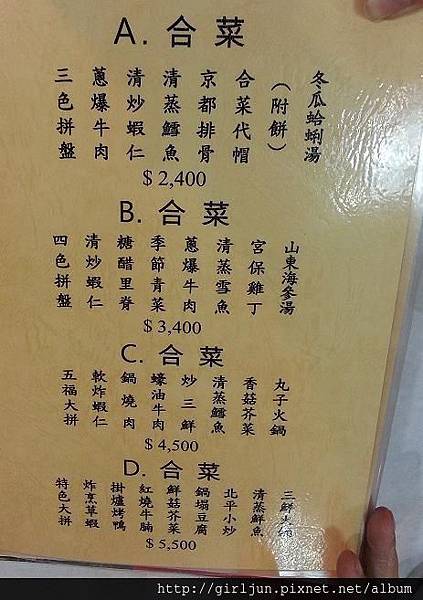 A. 合菜
三色拼盤
蔥爆牛肉
清炒蝦仁
清蒸鱈魚
京都排骨
合菜代帽
(附餅)
冬瓜蛤蜊湯
$ 2,400
B. 合菜
四色拼盤
清炒蝦仁
糖醋里脊
季節青菜
蔥爆牛肉
清蒸雪魚
宮保雞丁
山東海參湯
$ 3,400
C. 合菜
五福大拼
軟炸蝦仁
鍋燒肉
蠔油牛肉
炒三鮮
清蒸鱈魚
香菇芥菜
丸子火鍋
$ 4,500
D. 合菜
特色大拼
炸烹草蝦
掛爐烤鴨
紅燒牛腩
鮮菇芥菜
鍋塌豆腐
北平小炒
清蒸鮮魚
三鮮
$ 5,500
http://girljun.pixnet.net/album